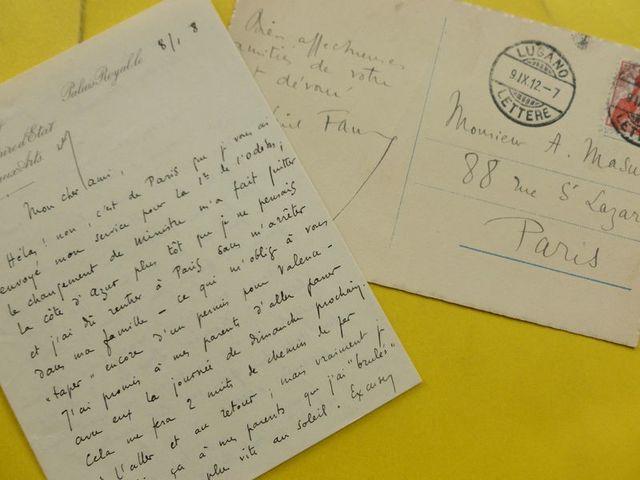 8/1 8
Palais Royal, le
d'Etat
Arts
Mon cher ami,
Hélas! non, c'est de Paris que je vous ai
envoyé mon service pour la 1re de l'Odéon;
le changement de Ministre m'a fait quitter
la côte d'Azur plus tôt que je ne pensais
et j'ai dû rentrer à Paris sans m'arrêter
dans ma famille — ce qui m'oblige à vous
"taper" encore d'un permis pour Valence —
J'ai promis à mes parents d'aller passer
avec eux la journée de dimanche prochain.
Cela me fera 2 nuits de chemin de fer
à l'aller et au retour; mais vraiment j
ça à mes parents que j'ai "brûlés"
plus vite au soleil. Excusez
Bien affectueuses
amitiés de votre
dévoué
LUGANO
9.IX.12.-7
LETTERE
Monsieur A.
88 rue St Lazar
Paris